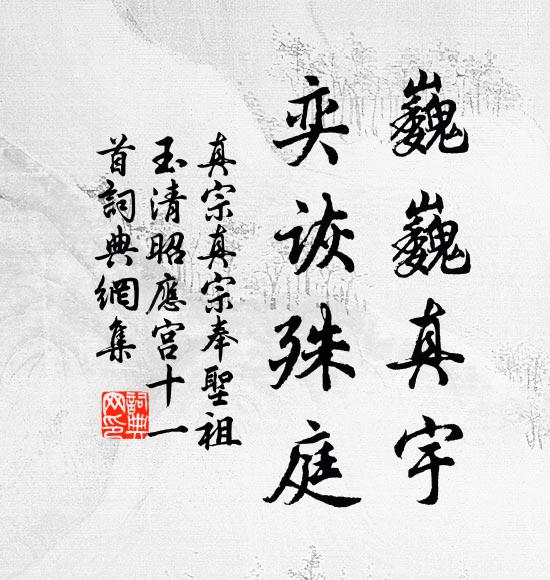 巍巍真宇
奕詼殊庭
真宗真宗奉聖祖
玉清昭應宮十一
首詞典網集
詞典網印